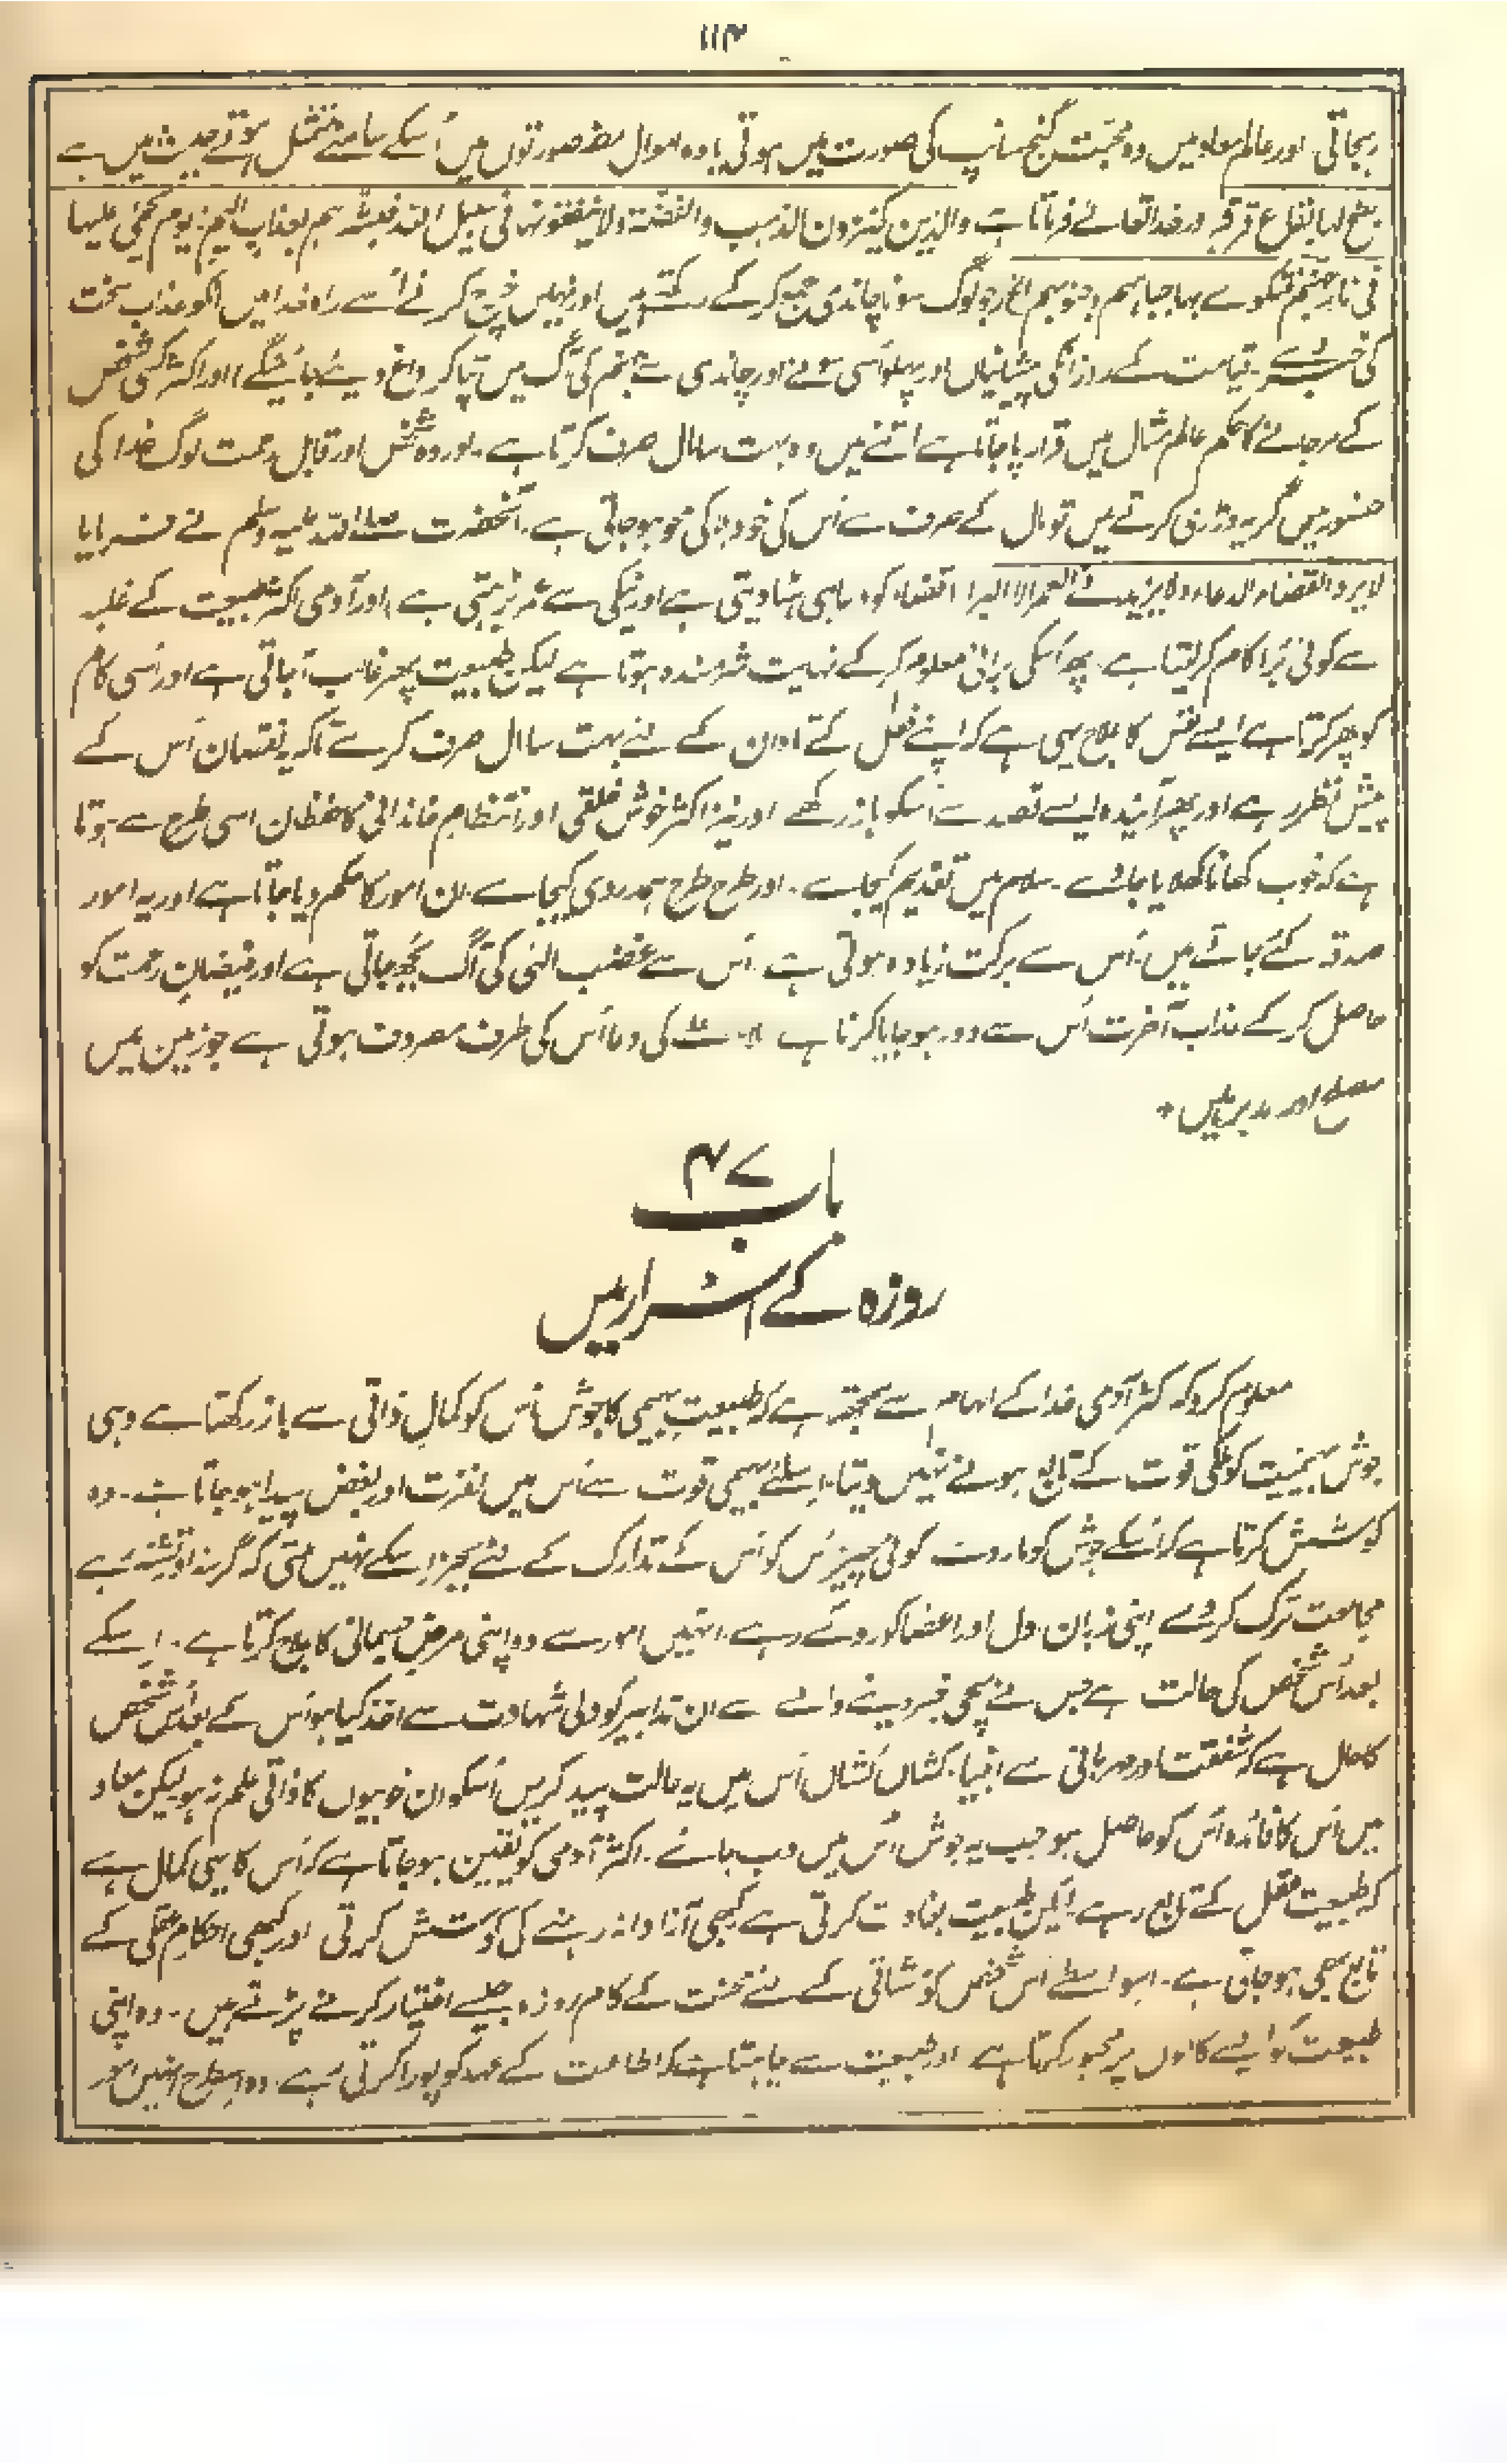 ۱۱۴
رہجاتی اور عالم معاد میں وہ محبت گنج سانپ کی صورت میں ہوتی یا وہ اموال مضر صورتوں میں اُسکے سامنے متمثل ہوتے حدیث میں ہے
بطح لہا بقاع قرقر اور خدا تعالے فرماتا ہے والذین یکنزون الذہب والفضۃ ولا ینفقونہا فی سبیل اللہ فبشرہم بعذاب الیم یوم یحمی علیہا
فی نار جہنم فتکوے بہا جباہہم وجنوبہم الخ جو لوگ سونا چاندی جمع کر کے رکھتے ہیں اور نہیں خرچ کرتے اُسے راہ خدا میں انکو عذاب سخت
کی خبر دے۔ قیامت کے روز انکی پیشانیاں اور پہلو اُسی سونے اور چاندی سے جہنم کی آگ میں تپا کر داغ دیے جائینگے اور اکثر کسی شخص
کے مرجانے کا حکم عالم مثال میں قرار پا جاتا ہے اتنے میں وہ بہت سا مال صرف کرتا ہے۔ اور وہ شخص اور قابل رحمت لوگ خدا کی
حضور میں گریہ و زاری کرتے ہیں تو مال کے صرف سے اُس کی خود ہلاکی محو ہو جاتی ہے۔ آنحضرت صلے اللہ علیہ وسلم نے فرمایا
لا یرد القضاء الا الدعاء ولا یزید فے العمر الا البر (قضاء کو دعا ہی ہٹا دیتی ہے اور نیکی سے عمر بڑہتی ہے) اور آدمی اکثر طبیعت کے غلبہ
سے کوئی بُرا کام کر لیتا ہے پھر اُسکی برائی معلوم کر کے نہایت شرمندہ ہوتا ہے لیکن طبیعت پھر غالب آ جاتی ہے اور اُسی کام
کو پھر کرتا ہے ایسے نفس کا علاج یہی ہے کہ اپنے فعل کے تاوان کے لئے بہت سا مال صرف کرے تاکہ یہ نقصان اُس کے
پیش نظر رہے اور پھر آیندہ ایسے قصد سے اُسکو باز رکھے اور نیز اکثر خوش خلقی اور انتظام خاندانی کا حفظان اسی طرح سے ہوتا
ہے کہ خوب کھانا کھلایا جائے۔ سلام میں تقدیم کیجاے۔ اور طرح طرح ہمدردی کیجاے ان امور کا حکم دیا جاتا ہے اور یہ امور
صدقہ گنے جاتے ہیں، اُس سے برکت زیادہ ہوتی ہے۔ اُس سے غضب الٰہی کی آگ بجھ جاتی ہے اور فیضانِ رحمت کو
حاصل کر کے عذاب آخرت اُس سے دور ہو جایا کرتا ہے کی دعا اُس کی طرف مصروف ہوتی ہے جو زمین میں
مصلح اور مدبر ہیں +
باب ۴۷
روزہ کے اسرار میں
معلوم کرو کہ اکثر آدمی خدا کے الہام سے سمجھتا ہے کہ طبیعتِ بہیمی کا جوش اُس کو کمال ذاتی سے باز رکھتا ہے وہی
جوش بہیمیت کو ملکی قوت کے تابع ہونے نہیں دیتا، اسلئے بہیمی قوت سے اُس میں نفرت اور بغض پیدا ہو جاتا ہے۔ وہ
کوشش کرتا ہے کہ اُسکے جوش کو مارے کوئی چیز اُس کو اُس کے تدارک کے لئے بجز اسکے نہیں ملتی کہ گرسنہ اور تشنہ رہے
مجامعت ترک کر دے اپنی زبان، دل اور اعضا کو روکے رہے، انہیں امور سے وہ اپنی مرض جسمانی کا علاج کرتا ہے۔ اسکے
بعد اُس شخص کی حالت ہے جس نے سچی خبر دینے والے سے ان تدابیر کو دلی شہادت سے اخذ کیا ہو اُس کے بعد اُس شخص
کا حال ہے کہ شفقت اور مہربانی سے انبیاء کشاں کشاں اُس میں یہ حالت پیدا کریں اُسکو ان خوبیوں کا ذاتی علم نہ ہو لیکن معاد
میں اُس کا فائدہ اُس کو حاصل ہو جب یہ جوش اُس میں دب جائے۔ اکثر آدمی کو یقین ہو جاتا ہے کہ اُس کا یہی کمال ہے
کہ طبیعت عقل کے تابع رہے لیکن طبیعت بغاوت کرتی ہے کبھی آزادانہ رہنے کی کوشش کرتی اور کبھی احکامِ عقلی کے
تابع بھی ہو جاتی ہے۔ اسواسطے اس شخص کو مشاقی کے لئے محنت کے کام روزہ جیسے اختیار کرنے پڑتے ہیں۔ وہ اپنی
طبیعت کو ایسے کاموں پر مجبور کرتا ہے اور طبیعت سے چاہتا ہے کہ اطاعت کے عہد کو پورا کرتی رہے۔ وہ اسطرح انہیں امور